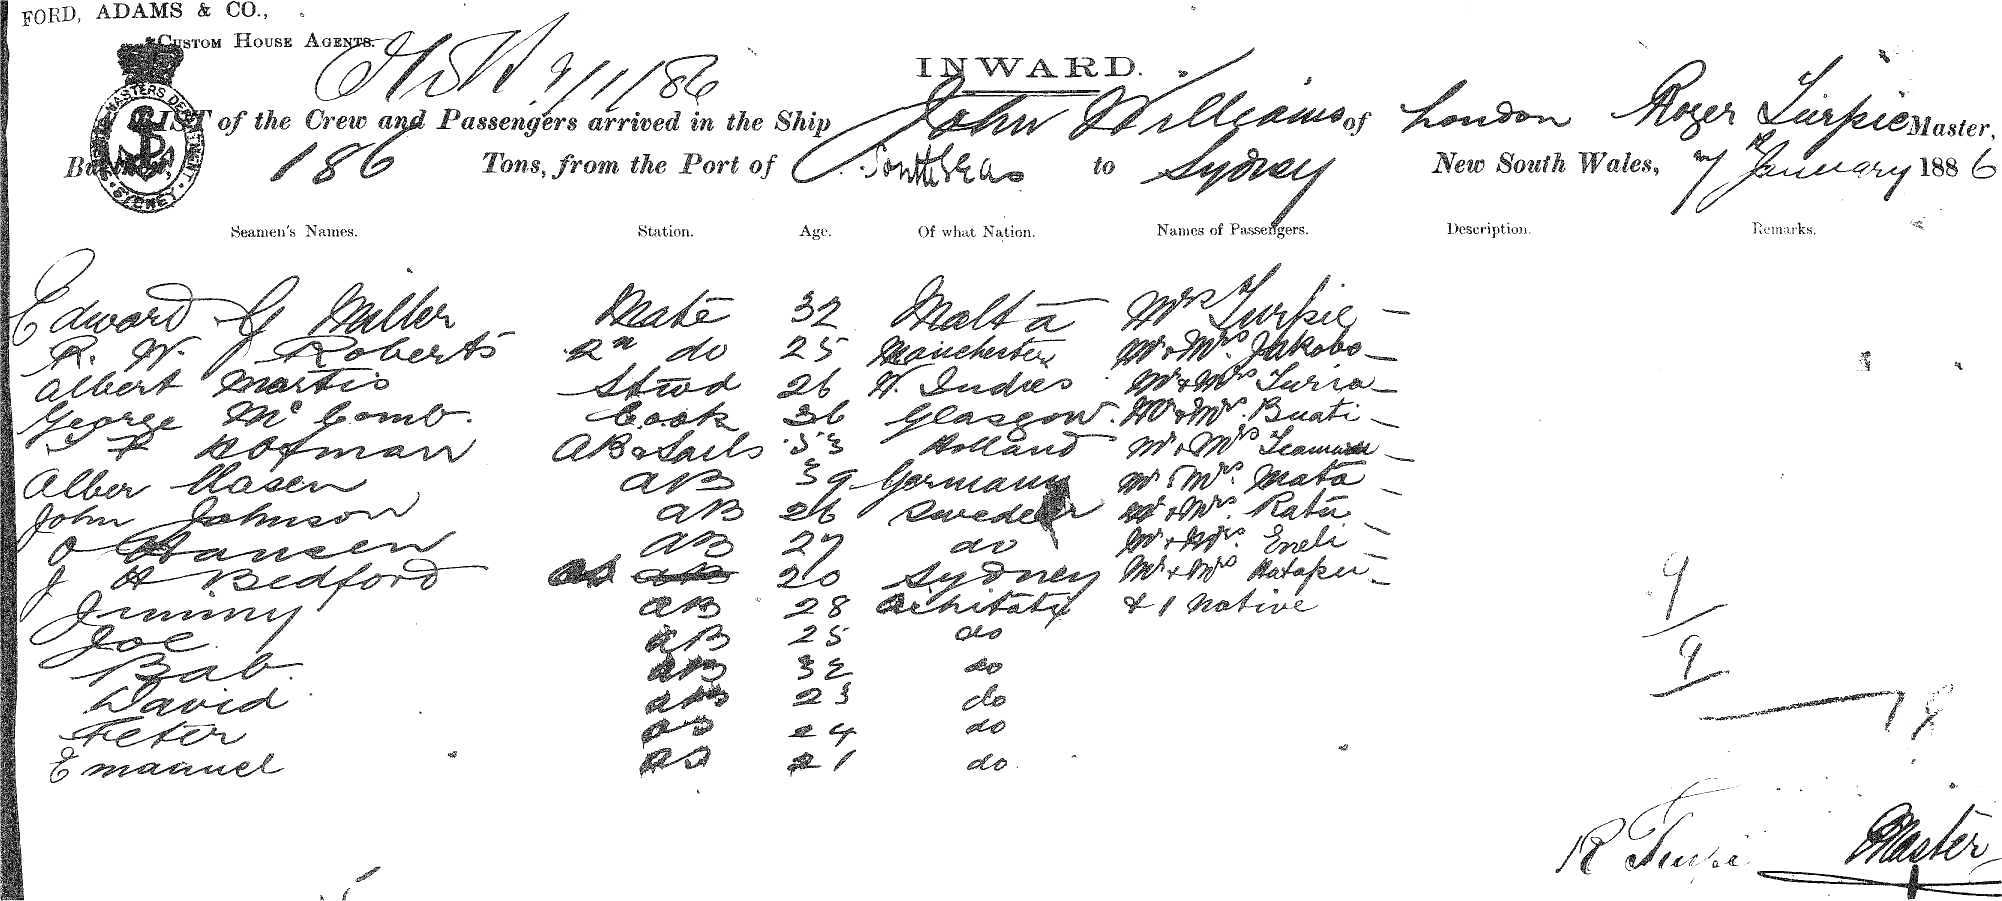 FORD, ADAMS & CO.,
CUSTOM HOUSE AGENTS.
9/1/86
INWARD.
LIST of the Crew and Passengers arrived in the Ship John Williams of London Roger Turpie Master,
Burthen, 186 Tons, from the Port of South Seas to Sydney New South Wales, 7th January 1886
MASTERS DEPARTMENT SYDNEY
Seamen's Names. Station. Age. Of what Nation. Names of Passengers. Description. Remarks.
Edward G Miller Mate 32 Malta Mrs Turpie —
R. W. Roberts 2n do 25 Manchester Mr & Mrs Jakobo —
Albert Martis Stwd 26 W. Indies Mr & Mrs Turia —
George McComb. Cook 36 Glasgow. Mr & Mrs. Buati —
Hofman AB & Sails 53 Holland Mr & Mrs —
Alber Hasen AB 39 Germany Mr & Mrs. Mata —
John Johnson AB 26 Sweden Mr & Mrs. Ratu —
O Hansen AB 27 do Mr & Mrs. Eneli —
J H Bedford 20 Sydney Mr & Mrs —
Jimmy AB 28 & 1 Native
Joe AB 25 do
Bab. AB 32 do
David 23 do
Peter 24 do
Emanuel 21 do.
9
9
18
R Turpie Master